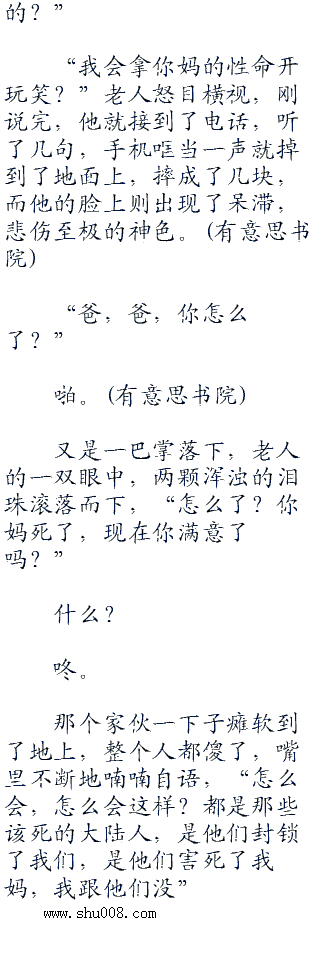 的？”
“我会拿你妈的性命开
玩笑？”老人怒目横视，刚
说完，他就接到了电话，听
了几句，手机哐当一声就掉
到了地面上，摔成了几块，
而他的脸上则出现了呆滞，
悲伤至极的神色。(有意思书
院)
“爸，爸，你怎么
了？”
啪。(有意思书院)
又是一巴掌落下，老人
的一双眼中，两颗浑浊的泪
珠滚落而下，“怎么了？你
妈死了，现在你满意了
吗？”
什么？
咚。
那个家伙一下子瘫软到
了地上，整个人都傻了，嘴
里不断地喃喃自语，“怎么
会，怎么会这样？都是那些
该死的大陆人，是他们封锁
了我们，是他们害死了我
妈，我跟他们没”
www.shu008.com